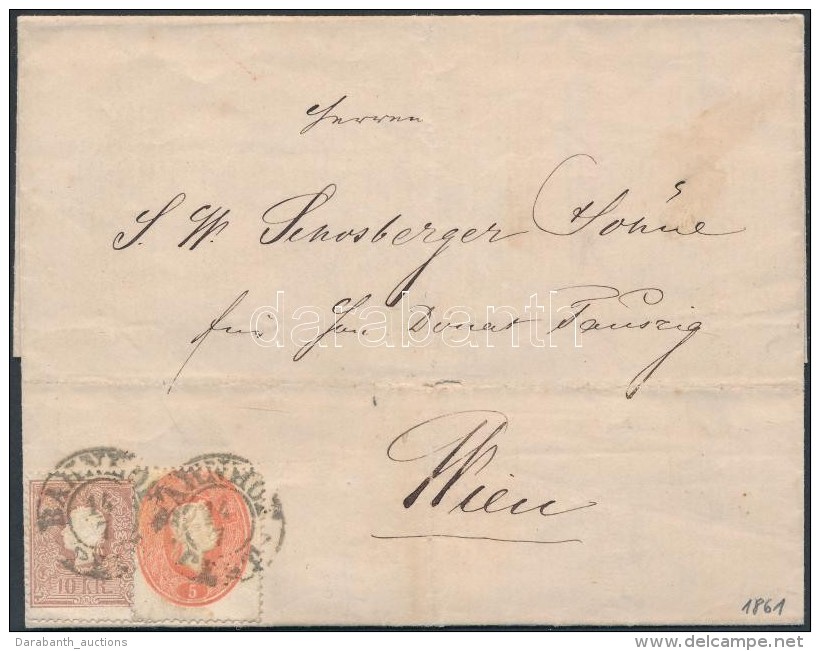 Herren
S. W. Schosberger Söhne
für Hrn Donat
Wien
darabanth
10 KR.
5
1861
Darabanth_auctions
www.delcampe.net